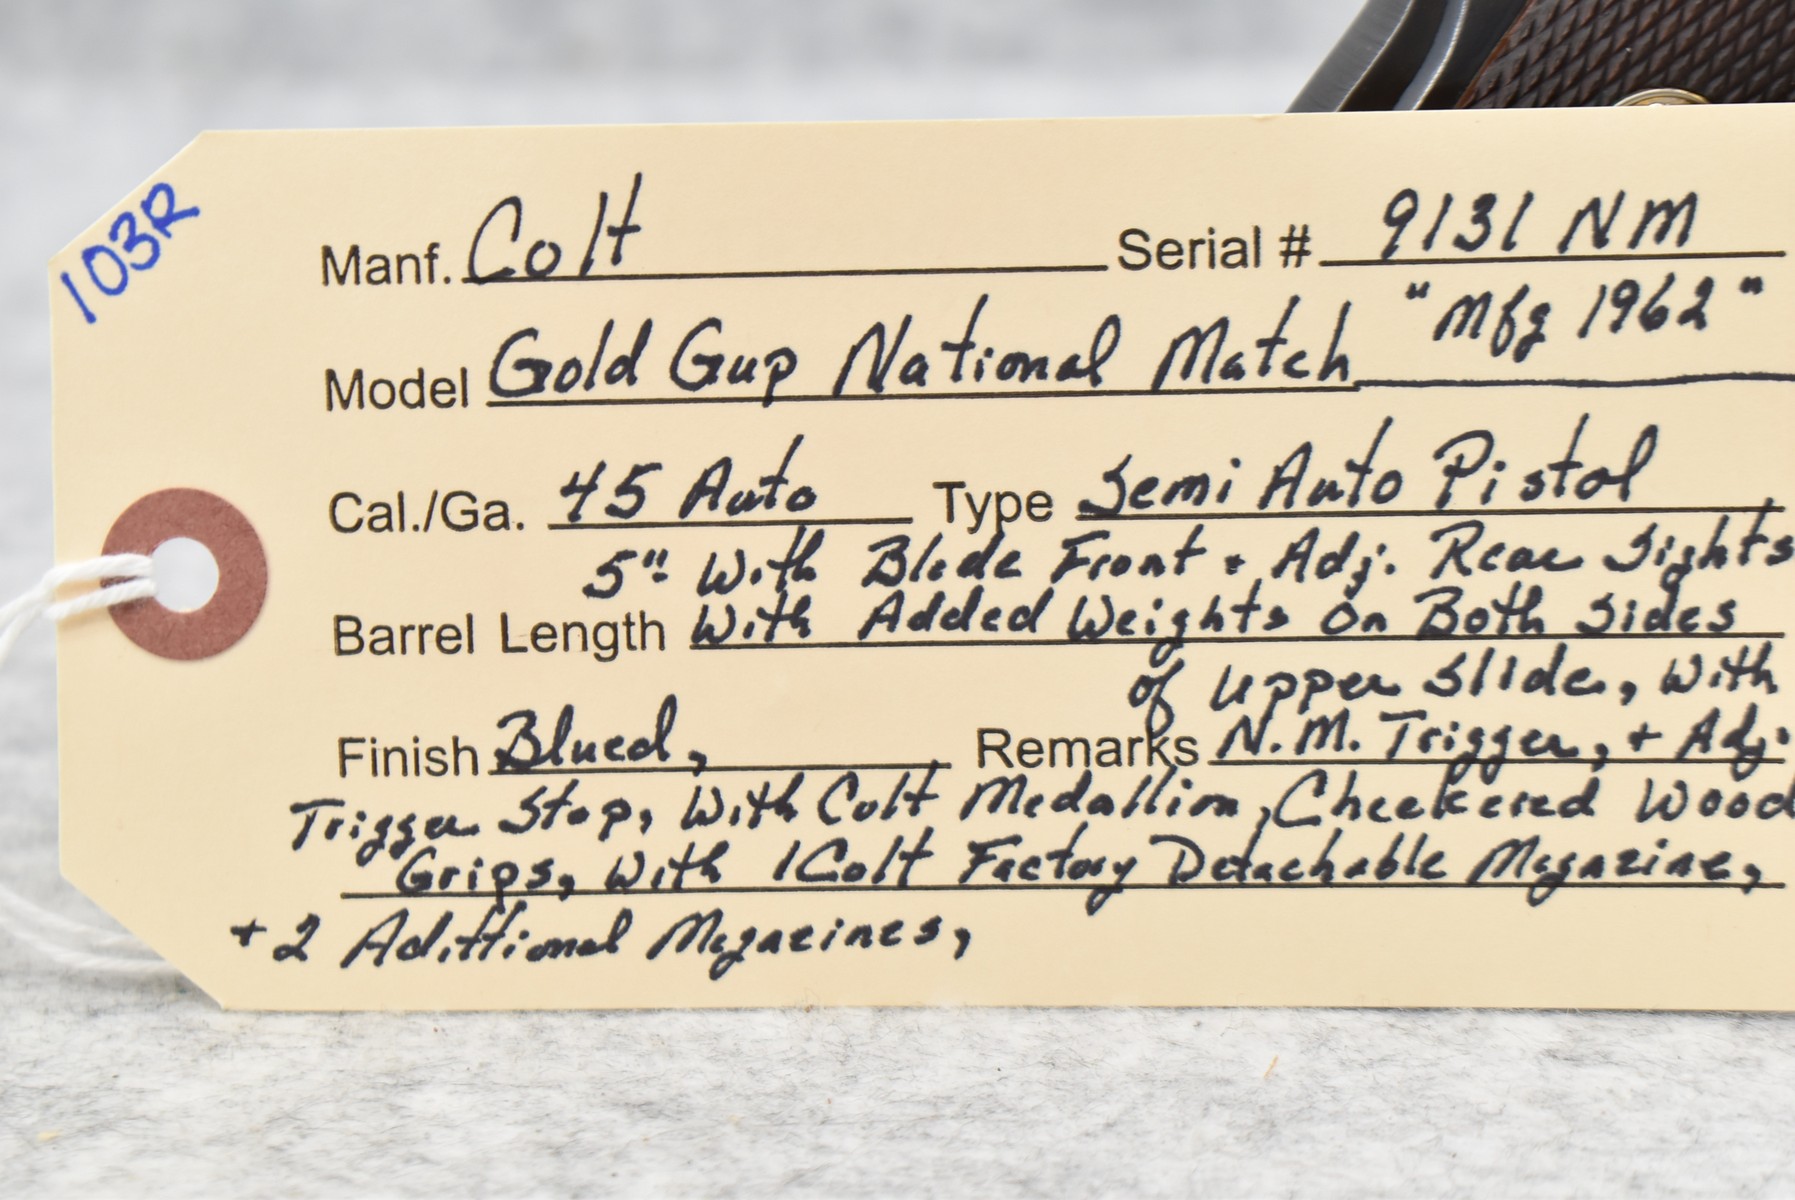 103R
Manf. Colt Serial # 9131 NM
"Mfg 1962"
Model Gold Gup National Match
Cal./Ga. 45 Auto Type Semi Auto Pistol
5" With Blade Front + Adj. Rear Sights
Barrel Length With Added Weights On Both Sides
of Upper Slide, With
Finish Blued, Remarks N.M. Trigger, + Adj.
Trigger Stop, With Colt Medallion, Checkered Wood
Grips, With 1 Colt Factory Detachable Magazine,
+ 2 Adittional Magazines,